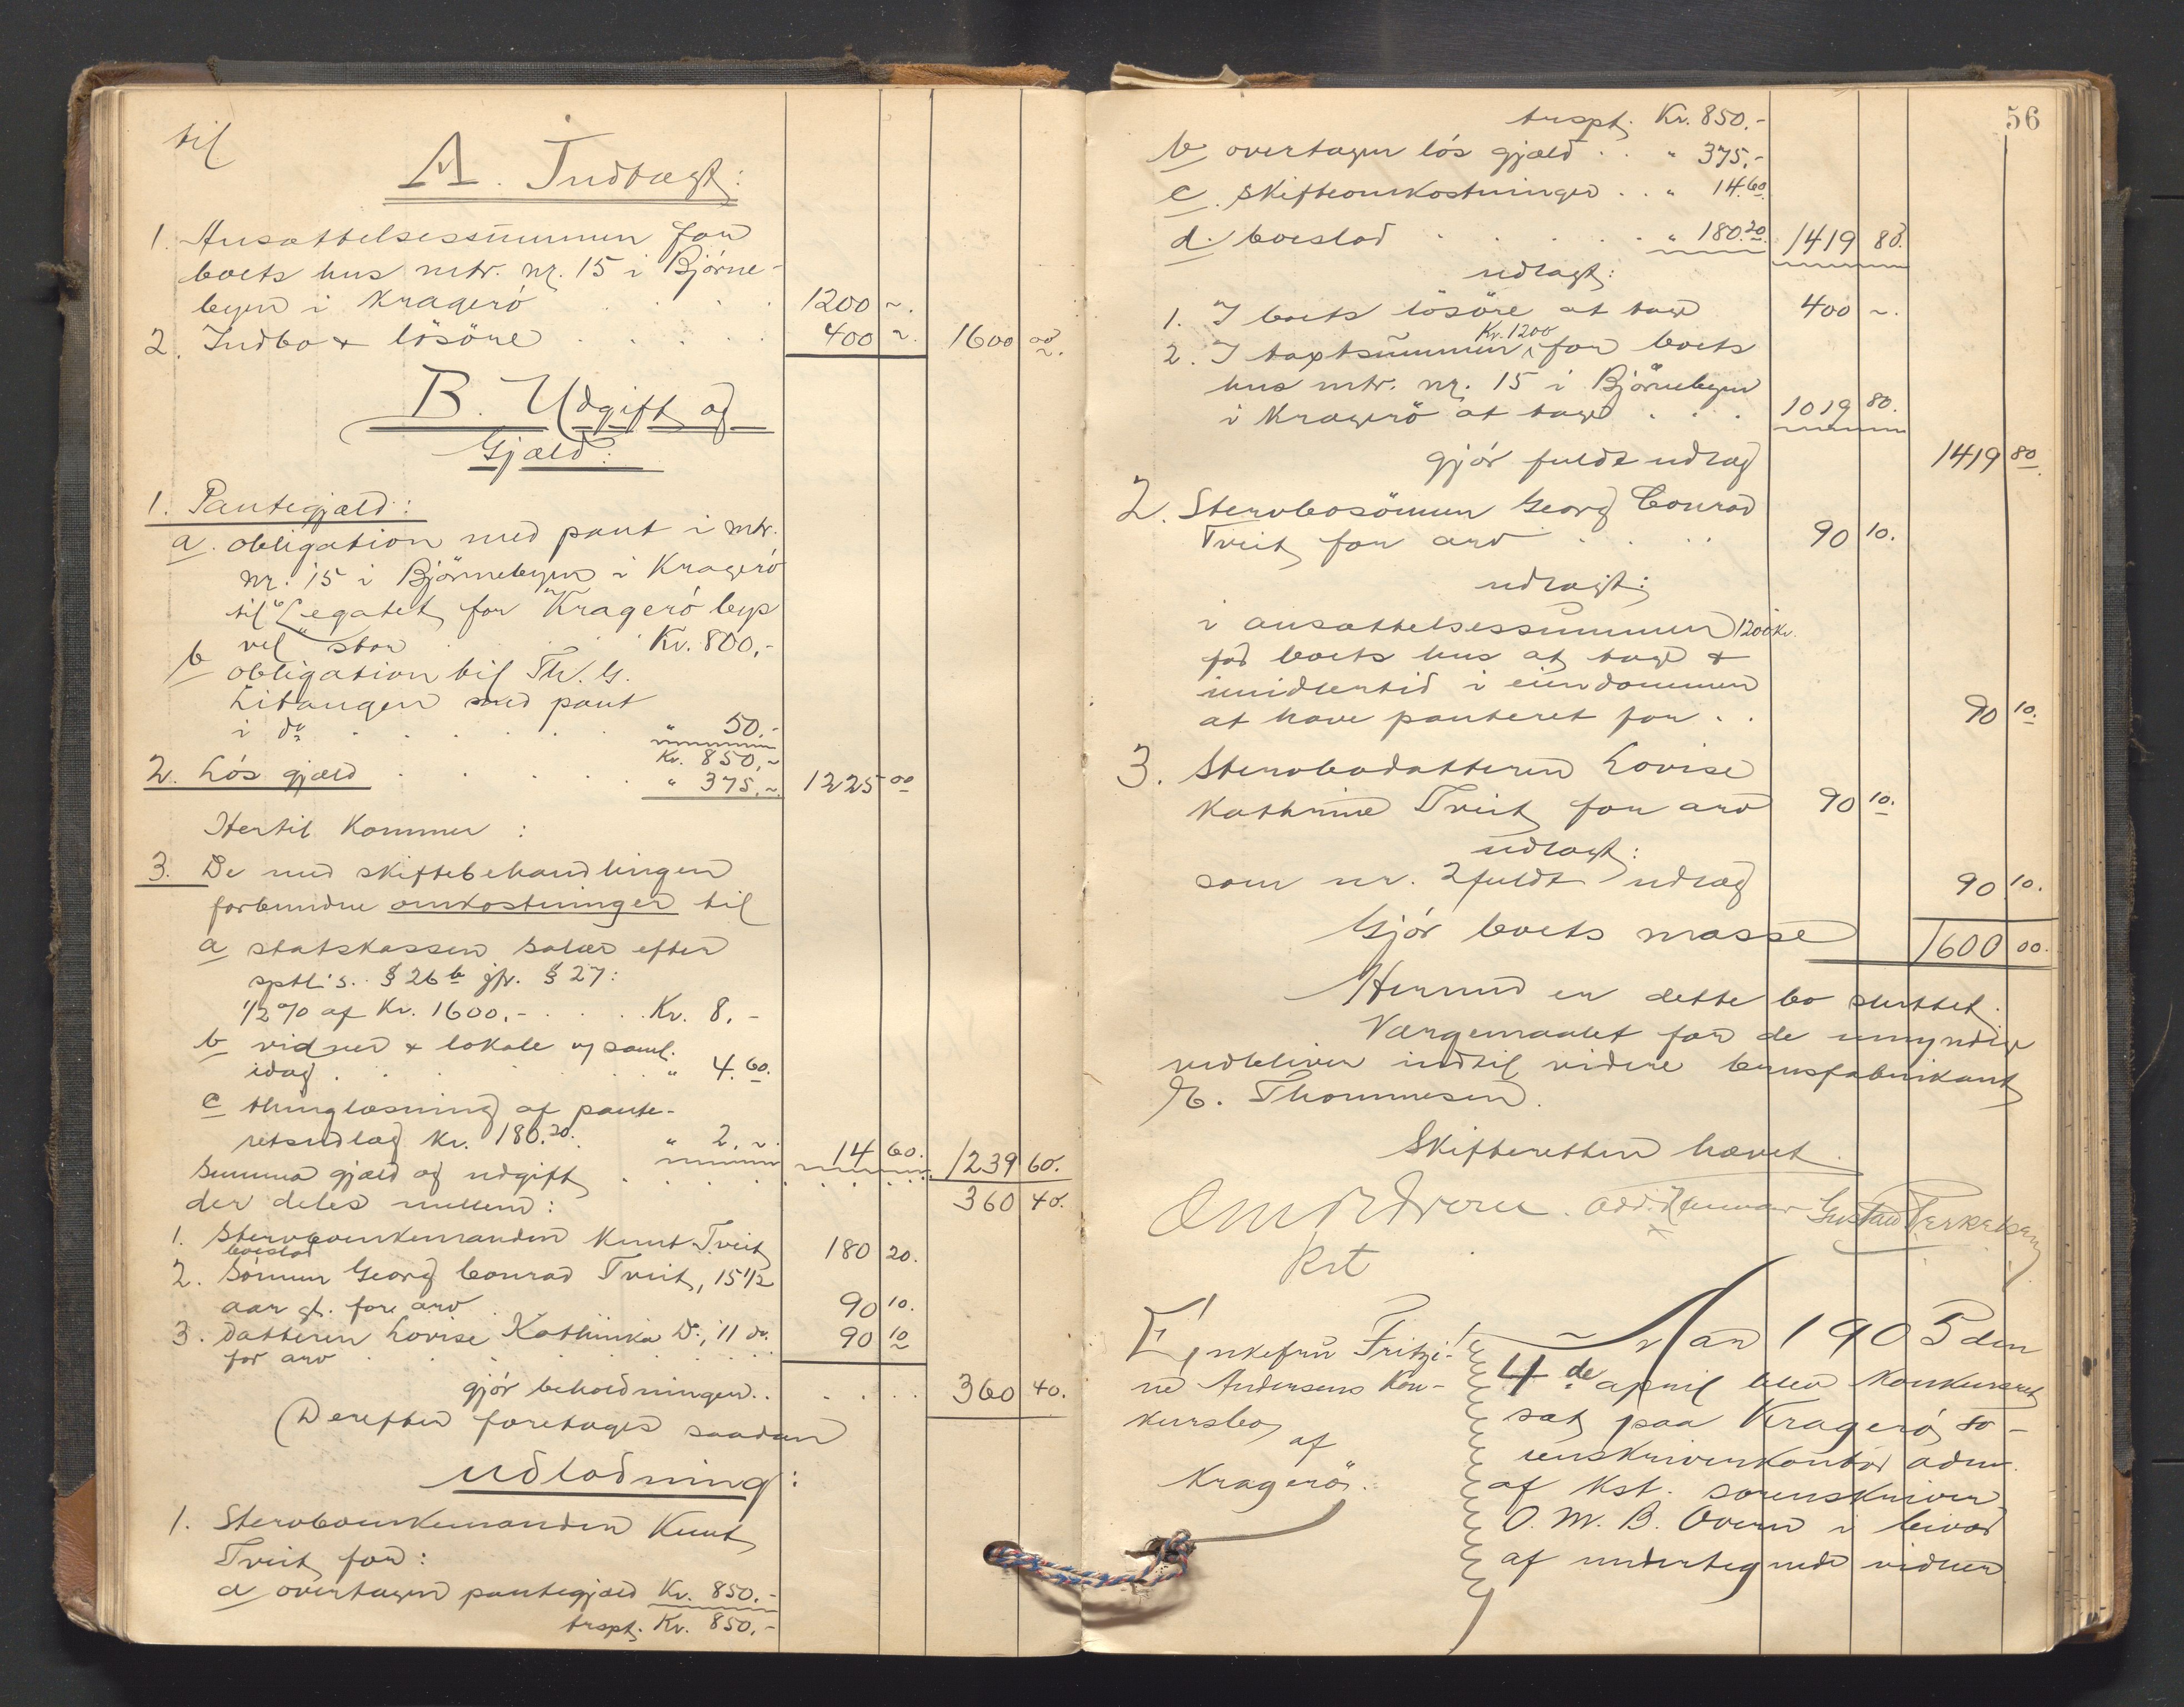 til
A. Indtægt:
1. Ansættelsessummen for
boets hus mtr. nr. 15 i Bjørne-
byen i Kragerø . . . 1200 ~.
2. Indbo & løsøre . . . . . 400 ~. 1600 00
B. Udgift og
Gjæld:
1. Pantegjæld:
a. obligation med pant i mtr.
nr. 15 i Björnebyen i Kragerø
til "Legatet for Kragerø byp
vel" stor . . . Kr. 800,-
b obligation til Th. G.
Litangen med pant
i do . . . . . " 50.-
Kr. 850,~
2. Løs gjæld . . . . " 375,~. 1225 00
Hertil kommer :
3. De med skiftebehandlingen
forbundne omkostninger til
a statskassen salær efter
sptl's. § 26 b jfr. § 27:
1/2 % af Kr. 1600.- . . . Kr. 8.-
b vidner & lokale v/ saml.
idag . . . . . " 4.60.
c thinglæsning af pante-
retsudlæg kr. 180.20. " 2.~. 14 60. 1239 60.
Summa gjæld og udgift . . . . . . . .
der deles mellem: 360 40.
1. Stervboenkemanden Knut Tveit
boeslod 180 20.
2. Sønnen Georg Conrad Tveit, 15 1/2
aar gl. for arv . 90 10.
3. datteren Lovise Kathinka Do., 11 do.
for arv . . . . . . 90 10
gjør beholdningen . . . . . 360 40.
Derefter foretages saadan
udlodning:
1. Stervboenkemanden Knut
Tveit for:
a overtagen pantegjæld Kr. 850.-
trspt. Kr. 850.-
56
trspt. Kr. 850.-
b overtagen løs gjæld . . " 375.-
c. skifteomkostninger . . " 14.60.
d. boeslod . . . . . " 180.20 1419 80.
udlagt:
1. I boets løsøre at tage 400 ~.
Kr. 1200
2. I taxtsummen for boets
hus mtr. nr. 15 i Björnebyen
i Kragerö at tage . . . 1019 80.
gjør fuldt udlæg 1419 80.
2. Stervbosønnen Georg Conrad
Tveit for arv . . . . 90 10.
udlagt:
i ansættelsessummen 1200 kr.
for boets hus at tage &
imidlertid i eiendommen
at have panteret for . . 90 10.
3. Stervbodatteren Lovise
Kathinne Tveit for arv 90 10.
udlagt:
som nr. 2 fuldt udlæg 90 10.
Gjør boets masse 1600 00.
Hermed er dette bo sluttet.
Værgemaalet for de umyndige
vedbliver indtil videre brusfabrikant
E. Thommesen.
Skifteretten hævet.
OMB Overn. Gustav
kst
Enkefru Fritzi-
ne Andersens Kon-
kursbo
af
Kragerø.
Aar 1905 den
4de april blev konkursret
sat paa Kragerø so-
renskriverkontor adm.
af kst. sorenskriver
O. M. B. Overn i bivær
af undertegnede vidner